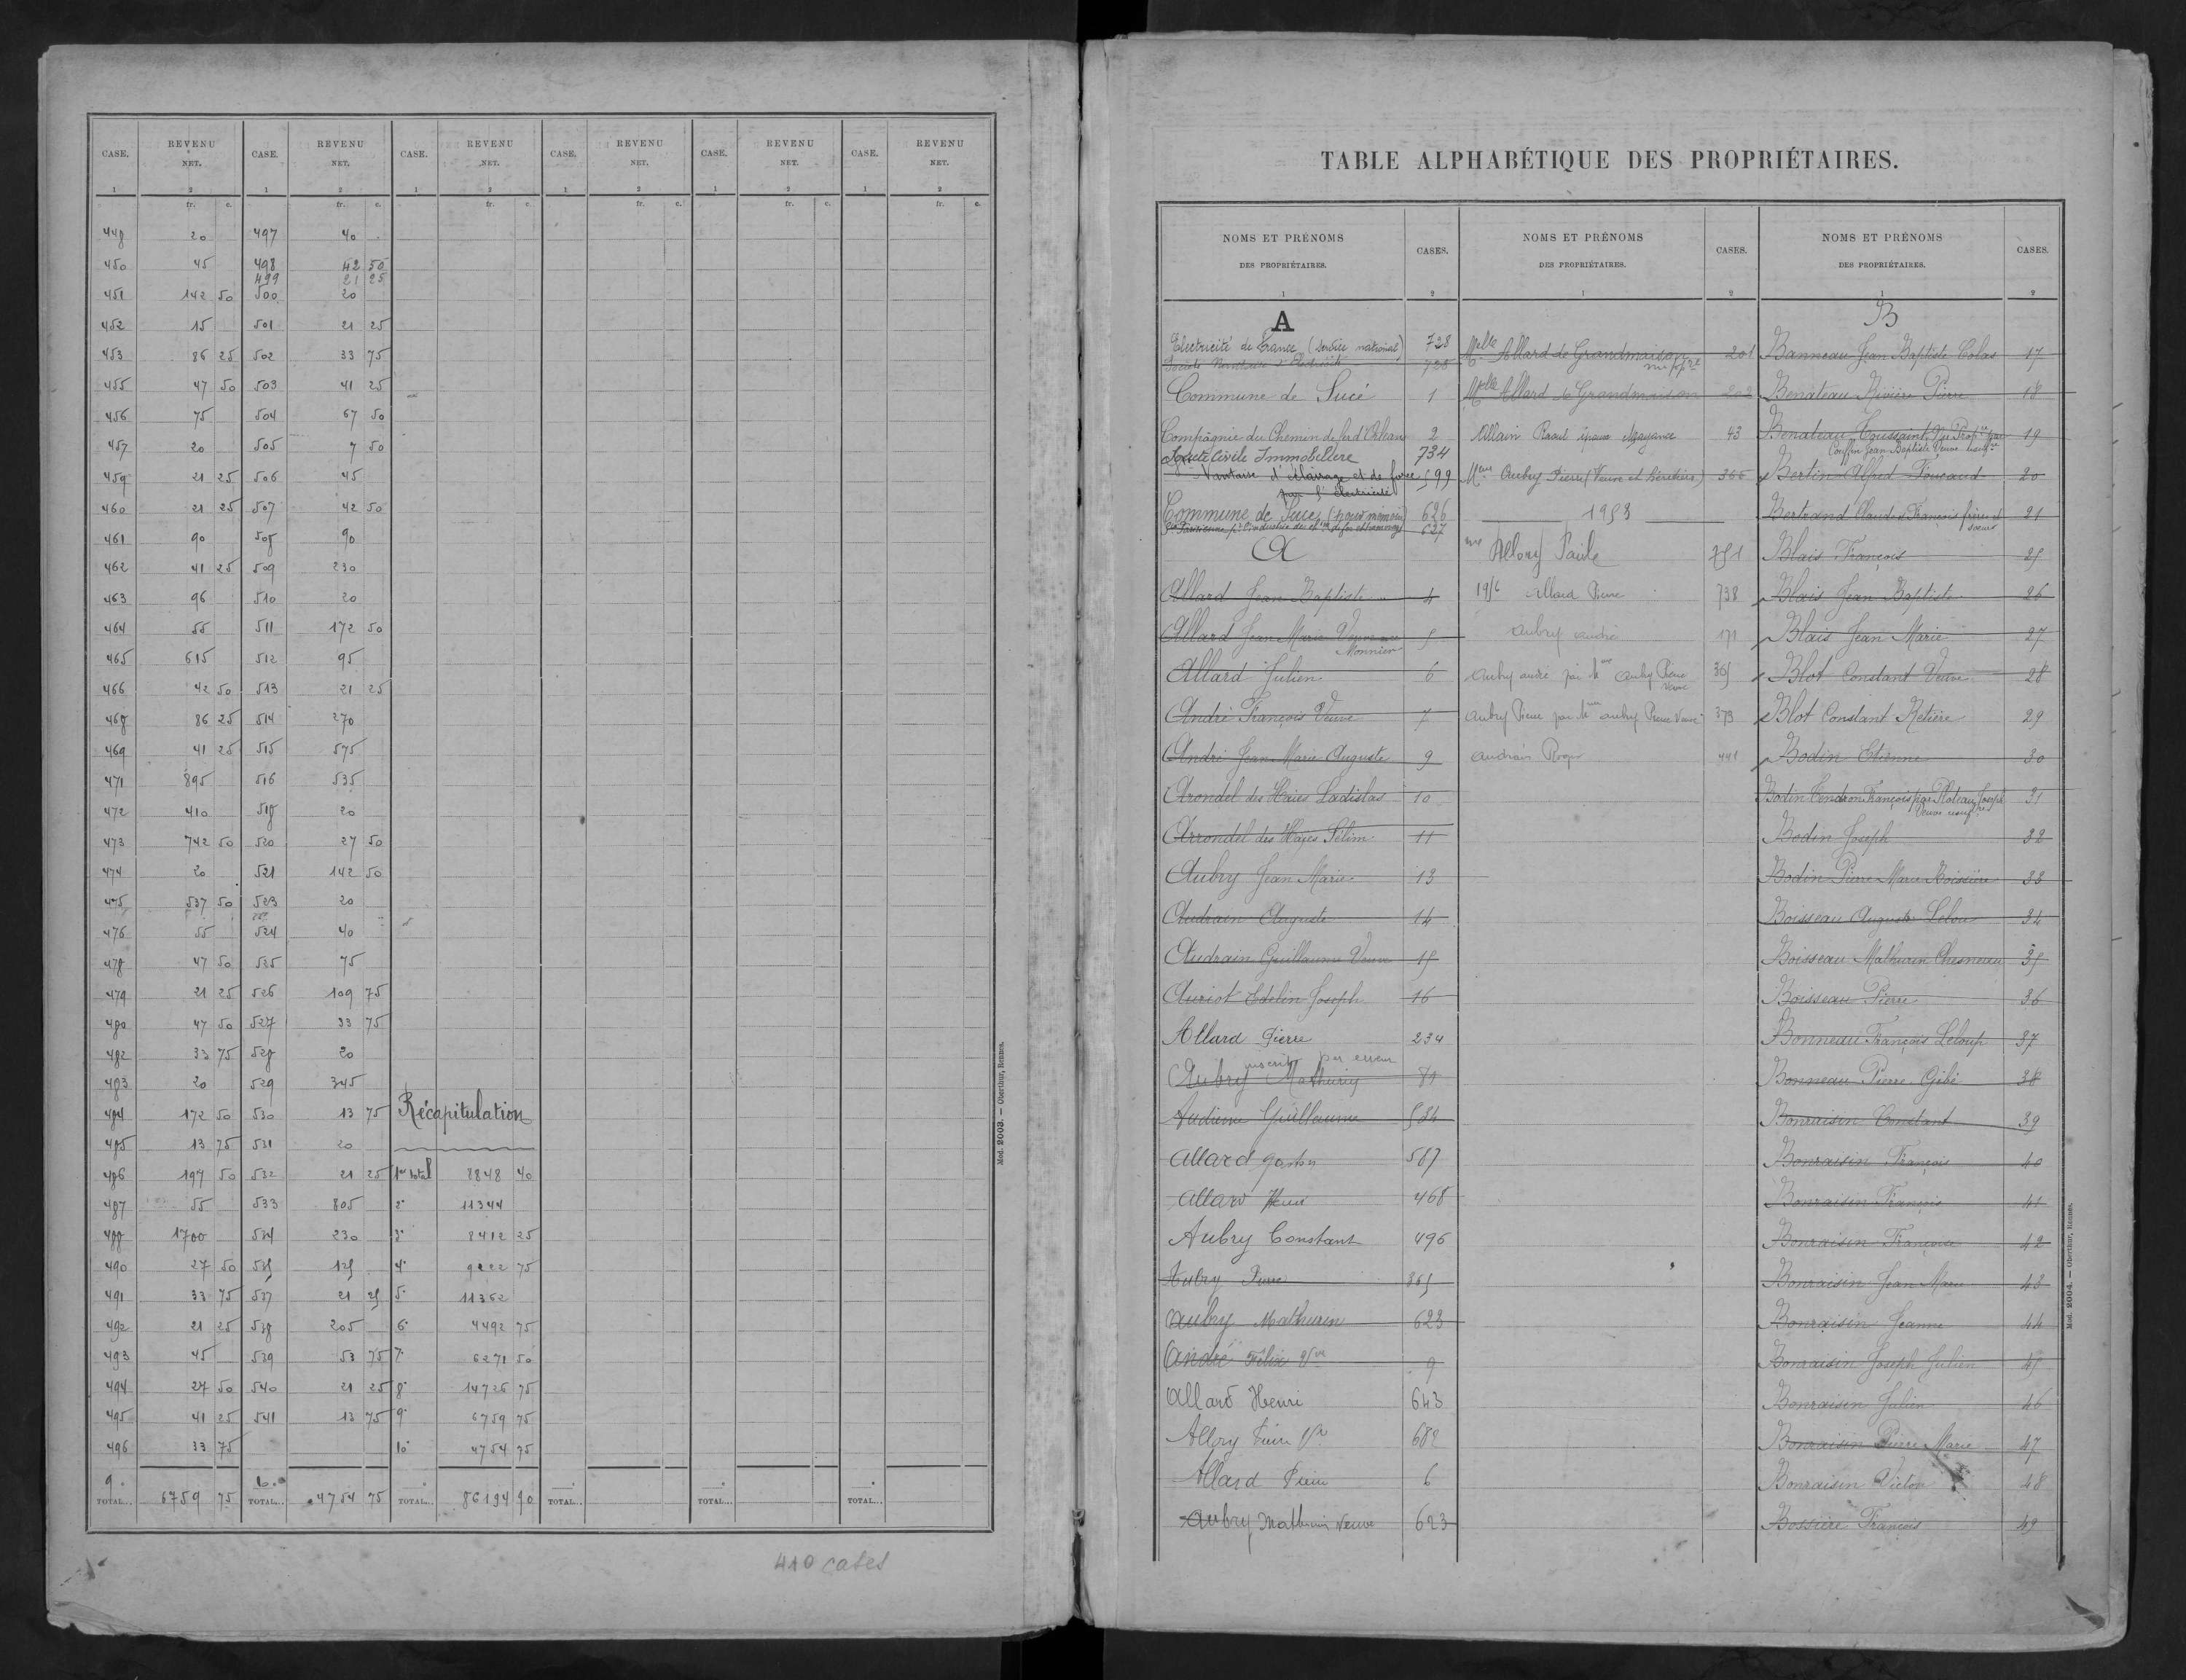 CASE. REVENU NET. CASE. REVENU NET. CASE. REVENU NET. CASE. REVENU NET. CASE. REVENU NET. CASE. REVENU NET.
1 2 1 2 1 2 1 2 1 2 1 2
fr. c. fr. c. fr. c. fr. c. fr. c. fr. c.
448 20 497 40
450 45 498 42 50
499 21 25
451 142 50 500 20
452 15 501 21 25
453 86 25 502 33 75
455 47 50 503 41 25
456 75 504 67 50
457 20 505 7 50
459 21 25 506 45
460 21 25 507 42 50
461 90 508 90
462 41 25 509 230
463 96 510 20
464 55 511 172 50
465 615 512 95
466 42 50 513 21 25
468 86 25 514 270
469 41 25 515 575
471 895 516 535
472 410 518 20
473 742 50 520 27 50
474 20 521 142 50
475 537 50 523 20
476 55 524 40
478 47 50 525 75
479 21 25 526 109 75
480 47 50 527 33 75
482 33 75 528 20
483 20 529 345
484 172 50 530 13 75 Récapitulation
485 13 75 531 20
486 197 50 532 21 25 1er total 8848 40
487 55 533 805 2° 11344
488 1700 534 230 3° 8412 25
490 27 50 535 125 4° 9222 75
491 33 75 537 21 25 5° 11362
492 21 25 538 205 6° 4492 75
493 45 539 53 75 7° 6271 50
494 27 50 540 21 25 8° 14726 75
495 41 25 541 13 75 9° 6759 75
496 33 75 10° 4754 75
9.
TOTAL... 6759 75 TOTAL... 4754 75 TOTAL... 86194 90 TOTAL... TOTAL... TOTAL...
Mod. 2003. — Oberthur, Rennes.
410 cases
TABLE ALPHABÉTIQUE DES PROPRIÉTAIRES.
NOMS ET PRÉNOMS DES PROPRIÉTAIRES. CASES. NOMS ET PRÉNOMS DES PROPRIÉTAIRES. CASES. NOMS ET PRÉNOMS DES PROPRIÉTAIRES. CASES.
1 2 1 2 1 2
A
Electricité de France (Service national) 728
Société Nantaise d'Electricité 728
Commune de Sucé 1
Compagnie du Chemin de fer d'Orléans 2
Société Civile Immobilière 734
Nantaise d'éclairage et de force 599
par l'électricité
Commune de Sucé (pour mémoire) 626
627
A
Allard Jean Baptiste 4
Allard Jean Marie 5
Monnier
Allard Julien 6
André François Veuve 7
André Jean Marie Auguste 9
Arondel des Haies Ladislas 10
Arrondel des Hayes Sélim 11
Aubry Jean Marie 13
Audrain Auguste 14
Audrain Guillaume Veuve 15
Auriot Edelin Joseph 16
Allard Pierre 234
inscrit par erreur
Aubry Mathurin 81
Guillaume 584
Allard Gaston 587
Allard Henri 468
Aubry Constant 496
Aubry Pierre 365
Aubry Mathurin 623
André Félix Vve 9
Allard Henri 643
Allory 682
Allard Pierre 6
Aubry Mathurin Veuve 623
Melle Allard de Grandmaison 201
nue ppté
Melle Allard de Grandmaison 202
Allain Raoul époux Mayance 43
Mme Aubry Pierre (Veuve et héritiers) 366
1958
Mme Allory Paule 751
1956 Allard Pierre 738
Aubry André 171
Aubry André par Mme Aubry Pierre 365
Veuve
Aubry Pierre par Mme Aubry Pierre Veuve 373
Audrain Roger 441
B
Banneau Jean Baptiste Colas 17
Benateau Rivière Pierre 18
Benateau Toussaint Nu Prop. par 19
Couffin Jean Baptiste Veuve
Bertin Alfred Foucaud 20
Bertrand Claude et François frère et 21
soeurs
Blais François 25
Blais Jean Baptiste 26
Blais Jean Marie 27
Blot Constant Veuve 28
Blot Constant Retière 29
Bodin Etienne 30
Bodin Tendron François par Ploteau Joseph 31
Veuve
Bodin Joseph 32
Bodin Pierre Marie Boissière 33
Boisseau Auguste Lelou 34
Boisseau Mathurin Chesneau 35
Boisseau Pierre 36
Bonneau François Leloup 37
Bonneau Pierre Gibé 38
Bonraisin Constant 39
Bonraisin François 40
Bonraisin François 41
Bonraisin Françoise 42
Bonraisin Jean Marie 43
Bonraisin Jeanne 44
Bonraisin Joseph Julien 45
Bonraisin Julien 46
Bonraisin Pierre Marie 47
Bonraisin Victor 48
Bossière François 49
Mod. 2004. — Oberthur, Rennes.